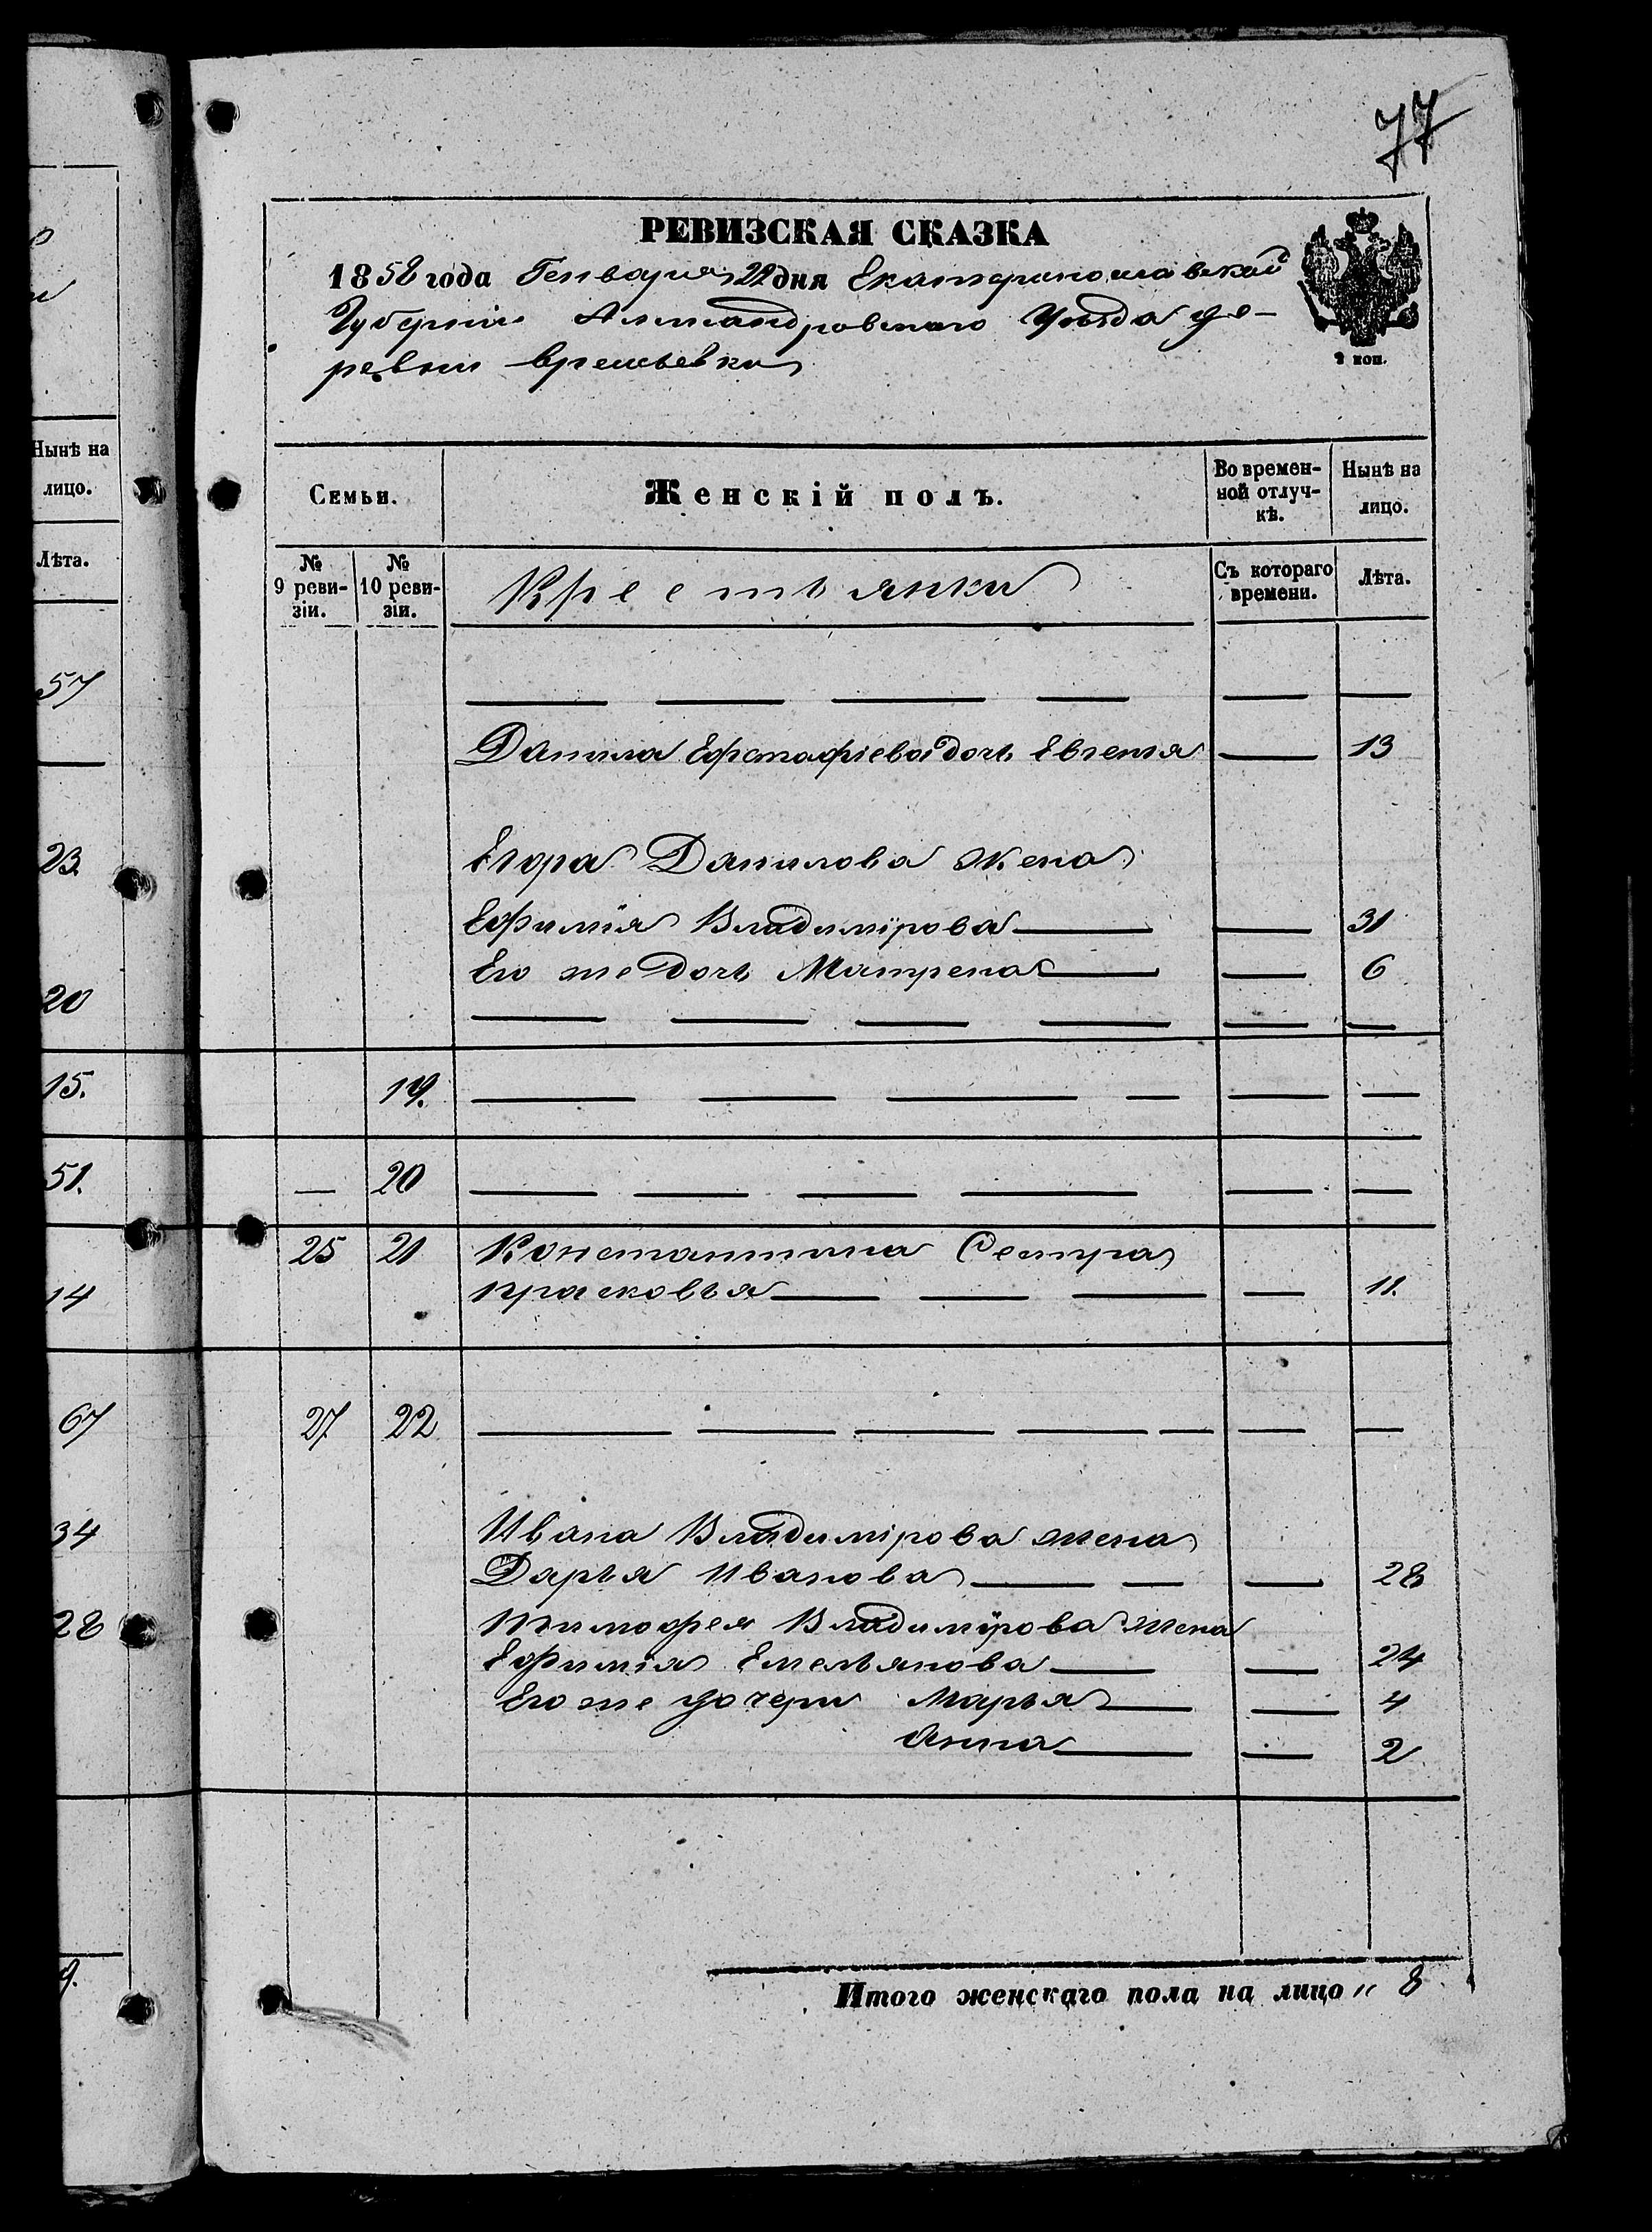 77
РЕВИЗСКАЯ СКАЗКА
1858 года Генваря 22 дня Екатеринославской
Губернии Александровскаго Уѣзда де-
ревни Времьевки
2 коп.
Семьи.
Женскій полъ.
Во времен-
ной отлуч-
кѣ.
Нынѣ на
лицо.
№
9 реви-
зіи.
№
10 реви-
зіи.
Крестьянки
Съ котораго
времени.
Лѣта.
Данила Ефстафіева дочь Евгенія — 13
Егора Данилова жена
Ефимія Владимірова — — 31
Его же дочь Матрена — — 6
19.
— 20
25 21 Константина Сестра
Прасковья — — — — 11.
27 22
Ивана Владимірова жена
Дарья Иванова — — — 28
Тимофея Владимірова жена
Ефимія Емельянова — — 24
Его же дочери Марья — — 4
Анна — — 2
Итого женскаго пола на лицо „ 8
Нынѣ на
лицо.
Лѣта.
57
23.
20
15.
51.
14
67
34
28
9.